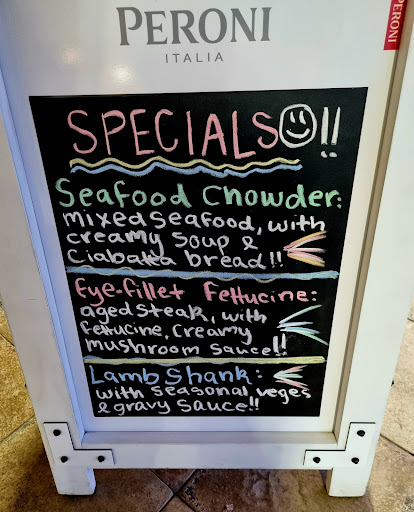 PERONI
ITALIA
PERONI
SPECIALS!!
Seafood Chowder:
mixed seafood, with
creamy soup &
Ciabatta bread!!
Eye-fillet Fettucine:
aged steak, with
fettucine, creamy
mushroom sauce!!
Lamb Shank:
with seasonal veges
& gravy sauce!!